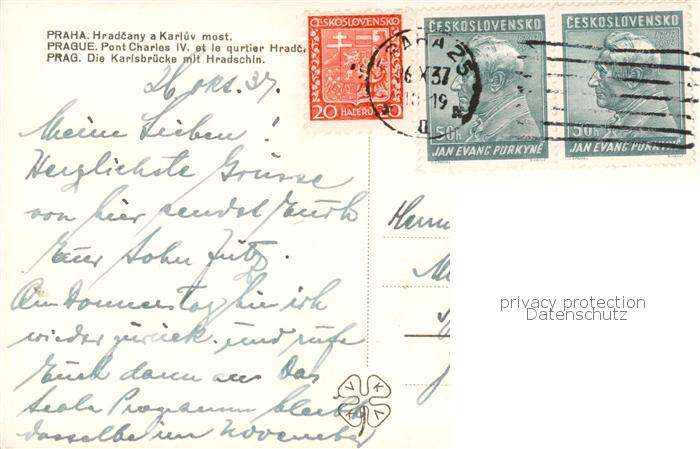 PRAHA. Hradčany a Karlův most.
PRAGUE. Pont Charles IV. et le qurtier Hradč
PRAG. Die Karlsbrücke mit Hradschin.
26 okt. 37.
Meine Lieben!
Herzlichste Grüsse
von hier sendet Euch
Euer Sohn Fritz.
Am Donnerstag bin ich
wieder zurück und rufe
Euch dann an. Das
Programm bleibt
dasselbe im November
ČESKOSLOVENSKO
20 HALÉŘŮ 20
PRAHA 25
26 X 37
19
ČESKOSLOVENSKO
50h
JAN EVANG. PURKYNĚ
ČESKOSLOVENSKO
50h
JAN EVANG. PURKYNĚ
Herrn
V K V
privacy protection
Datenschutz